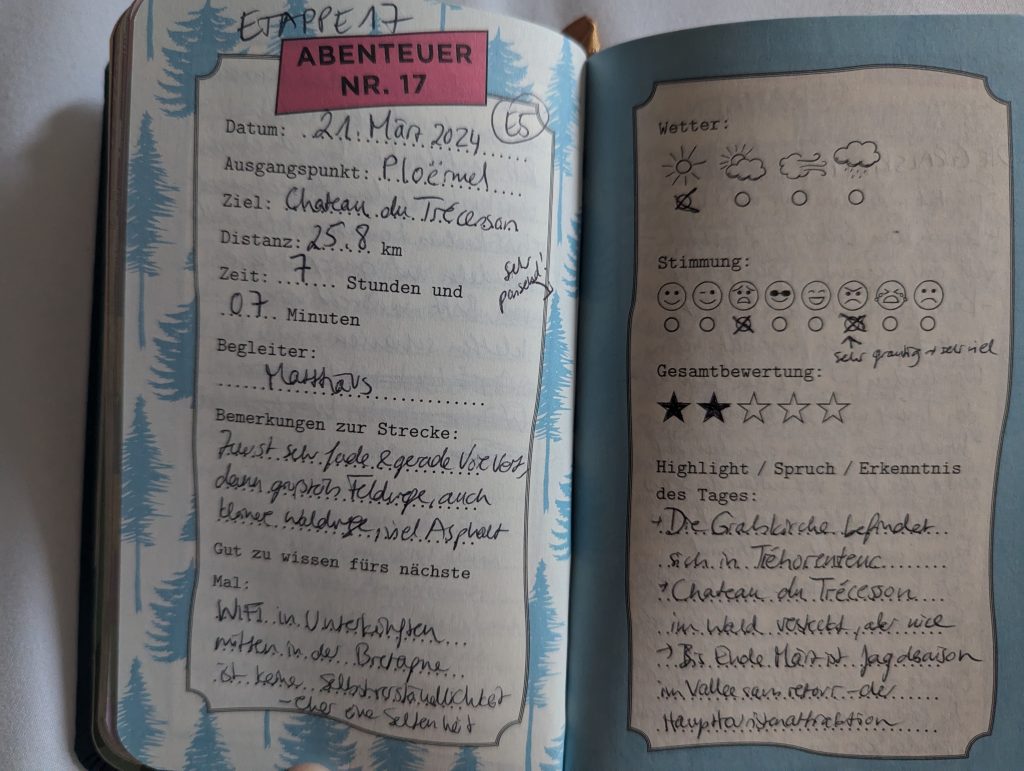 ETAPPE 17
ABENTEUER
NR. 17
E5
Datum: 21. März 2024
Ausgangspunkt: Ploërmel
Ziel: Chateau du Trécesson
Distanz: 25,8 km
Zeit: 7 Stunden und
07 Minuten
sehr
passend!
Begleiter:
Matthäus
Bemerkungen zur Strecke:
Zuerst sehr fade & gerade Voie Vert,
dann großteils Feldwege, auch
kleinere Waldwege, viel Asphalt
Gut zu wissen fürs nächste
Mal:
WIFI in Unterkünften
mitten in der Bretagne
ist keine Selbstverständlichkeit
- eher eine Seltenheit
Wetter:
Stimmung:
sehr grantig + sehr viel
Gesamtbewertung:
Highlight / Spruch / Erkenntnis
des Tages:
→ Die Gralskirche befindet
sich in Tréhorenteuc
→ Chateau du Trécesson
im Wald versteckt, aber nice
→ Bis Ende März ist Jagdsaison
im Vallee sans retour - der
Haupttouristenattraktion